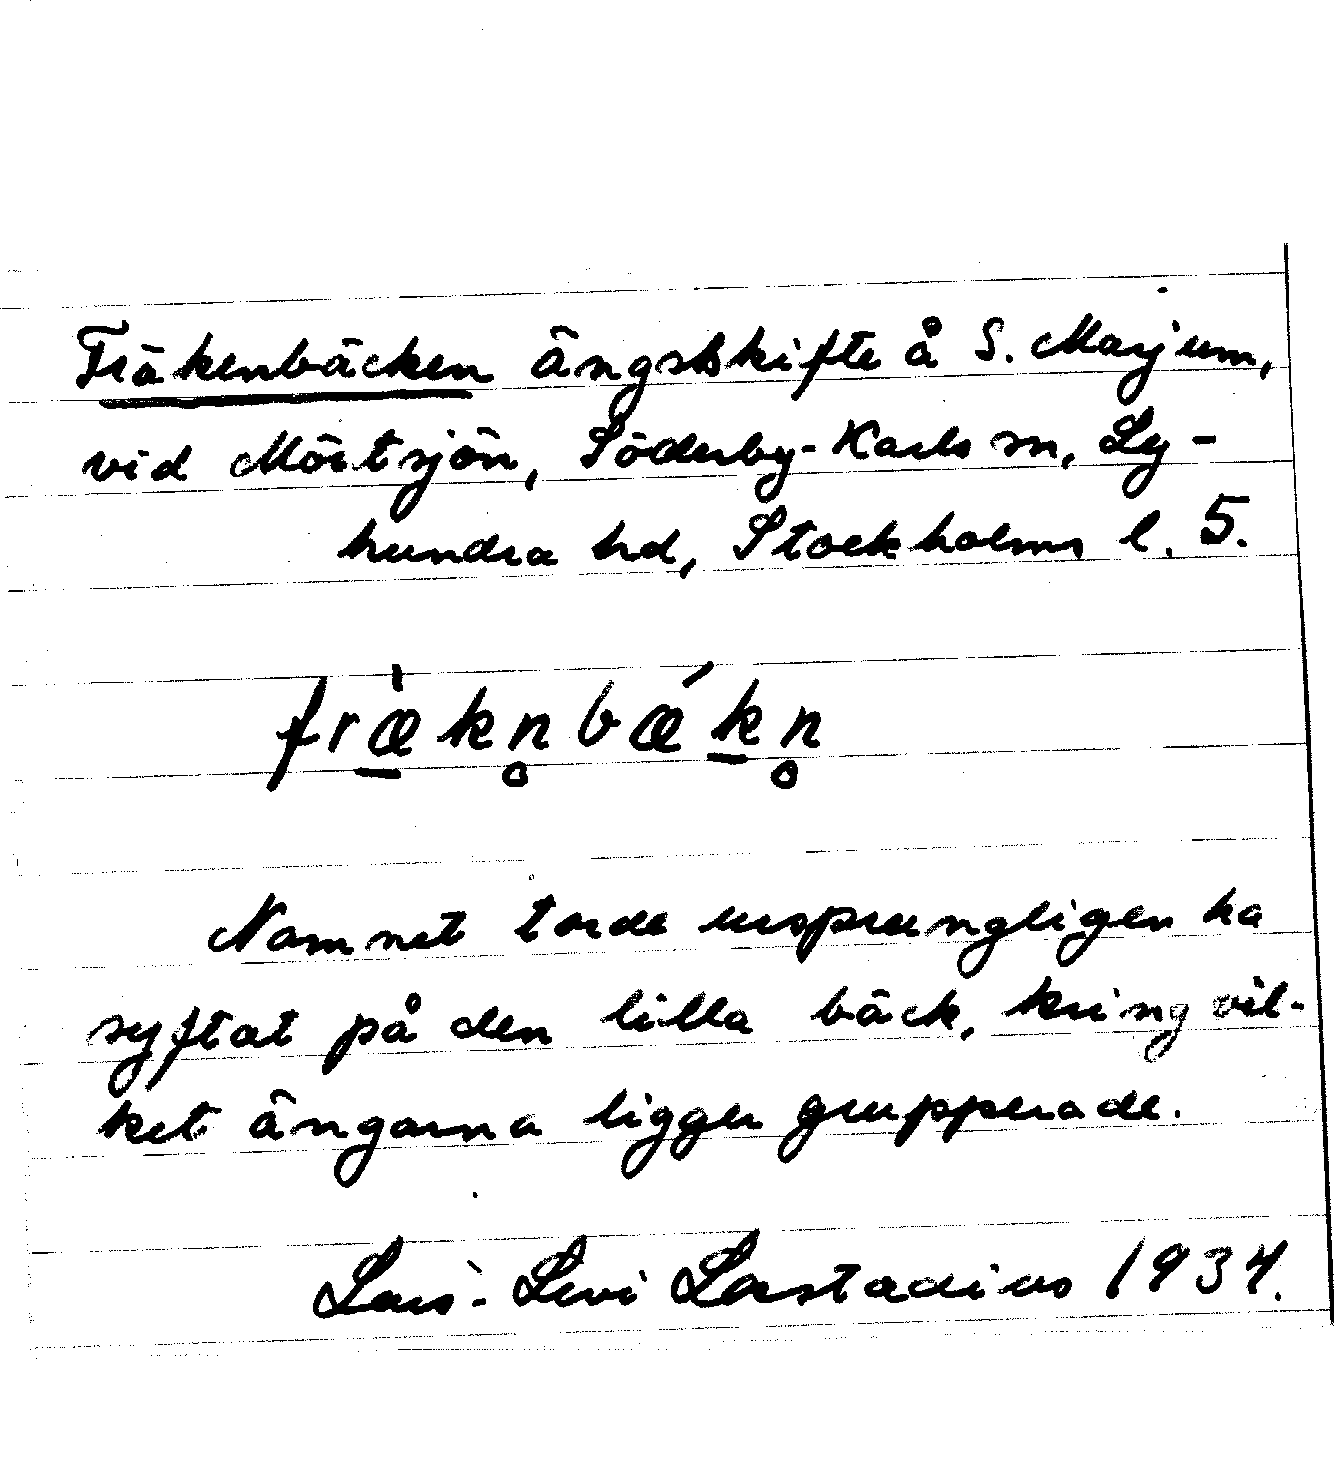 Fräkenbäcken ängsskifte å S. Marjum,
vid Mörtsjön, Söderby-Karls sn, Ly-
hundra hd, Stockholms l. 5.
fræ̱̀kn̥bǽḵn̥
Namnet torde ursprungligen ha
syftat på den lilla bäck, kring vil-
ket ängarna ligger grupperade.
Lars-Levi Læstadius 1934.